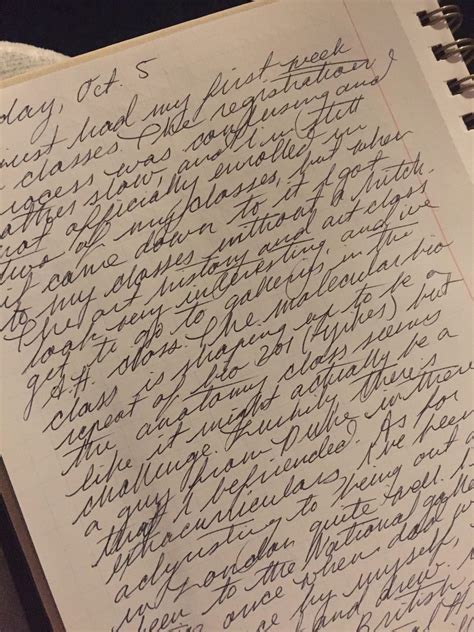 day, Oct. 5
just had my first week
classes. The registration
process was confusing and
rather slow and I'm still
not officially enrolled in
two of my classes, but when
it came down to it I got
to my classes without a hitch.
The art history and art class
look very interesting, and we
get to go to galleries in the
A.H. class. The molecular bio
class is shaping up to be a
repeat of bio 201 (yikes) but
the anatomy class seems
like it might actually be a
challenge. Luckily there's
a guy from Duke in there
that I befriended. As for
extracurriculars, I've been
adjusting to being out
in London quite well. I
been to the National
once when dad
by myself,
and drew
British